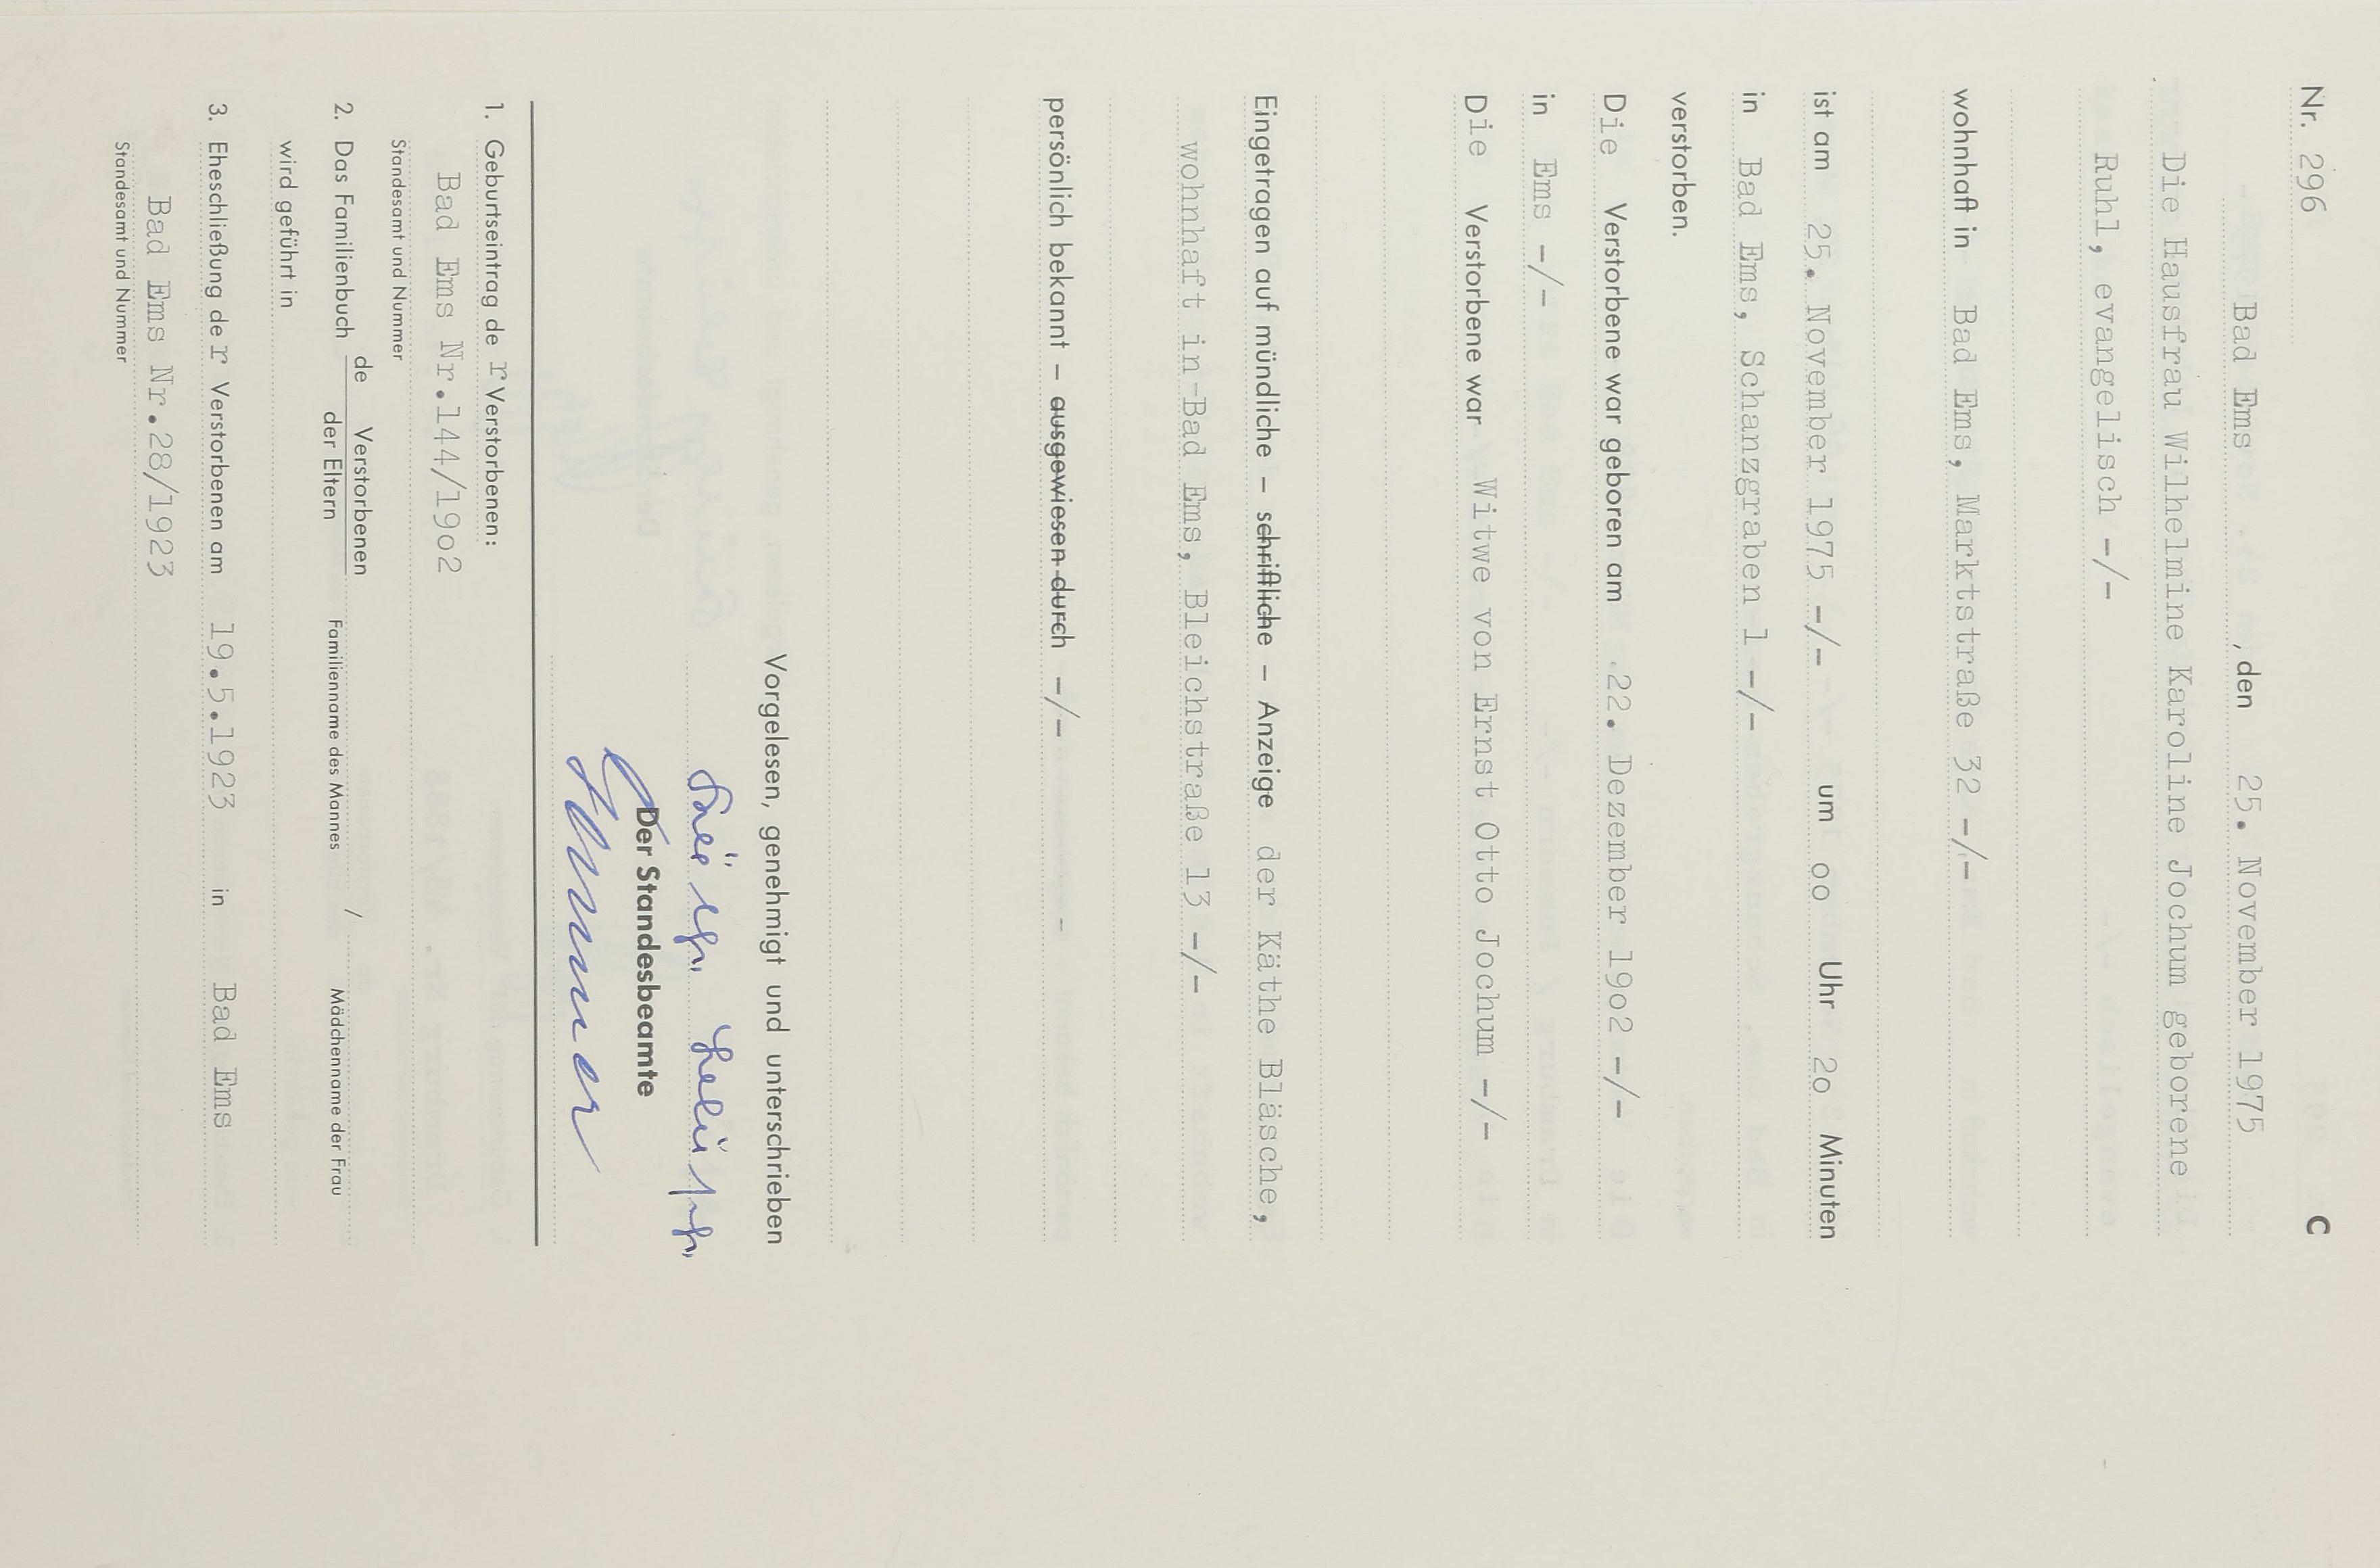 Nr. 296 C
Bad Ems , den 25. November 1975
Die Hausfrau Wilhelmine Karoline Jochum geborene
Ruhl, evangelisch -/-
wohnhaft in Bad Ems, Marktstraße 32 -/-
ist am 25. November 1975 -/- um oo Uhr 2o Minuten
in Bad Ems, Schanzgraben 1 -/-
verstorben.
Die Verstorbene war geboren am 22. Dezember 19o2 -/-
in Ems -/-
Die Verstorbene war Witwe von Ernst Otto Jochum -/-
Eingetragen auf mündliche – schriftliche – Anzeige der Käthe Bläsche,
wohnhaft in Bad Ems, Bleichstraße 13 -/-
persönlich bekannt – ausgewiesen durch -/-
Vorgelesen, genehmigt und unterschrieben
Der Standesbeamte
1. Geburtseintrag de r Verstorbenen:
Bad Ems Nr.144/19o2
Standesamt und Nummer
2. Das Familienbuch de Verstorbenen / der Eltern
Familienname des Mannes / Mädchenname der Frau
wird geführt in
3. Eheschließung de r Verstorbenen am 19.5.1923 in Bad Ems
Bad Ems Nr.28/1923
Standesamt und Nummer